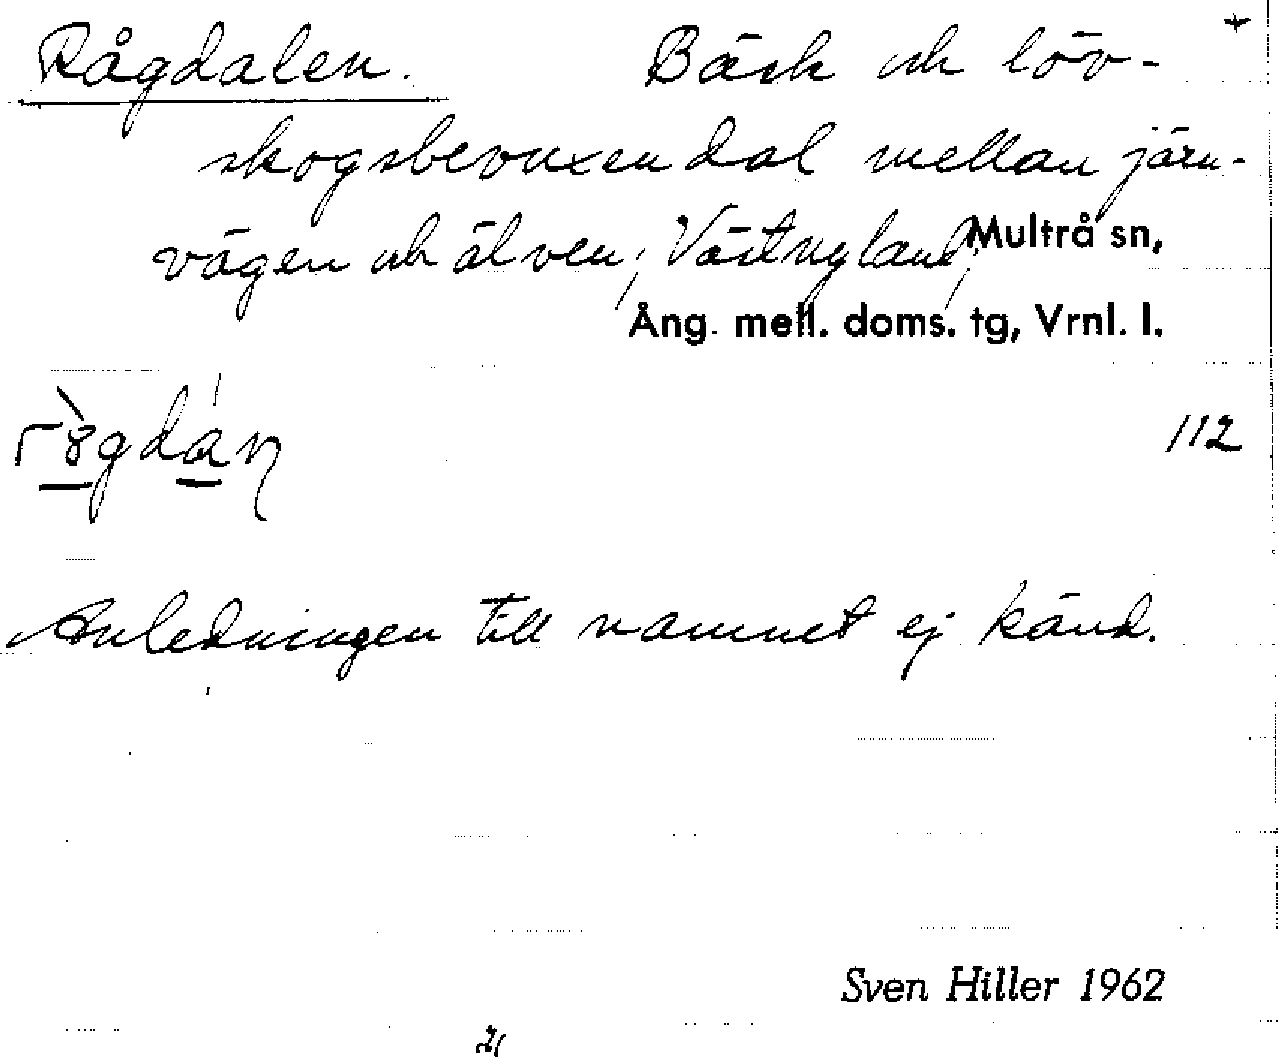 Rågdalen. Bäck och löv-
skogsbevuxen dal mellan järn-
vägen och älven; Västnyland.
Multrå sn,
Ång. mell. doms. tg, Vrnl. l.
112
Anledningen till namnet ej känd.
Sven Hiller 1962